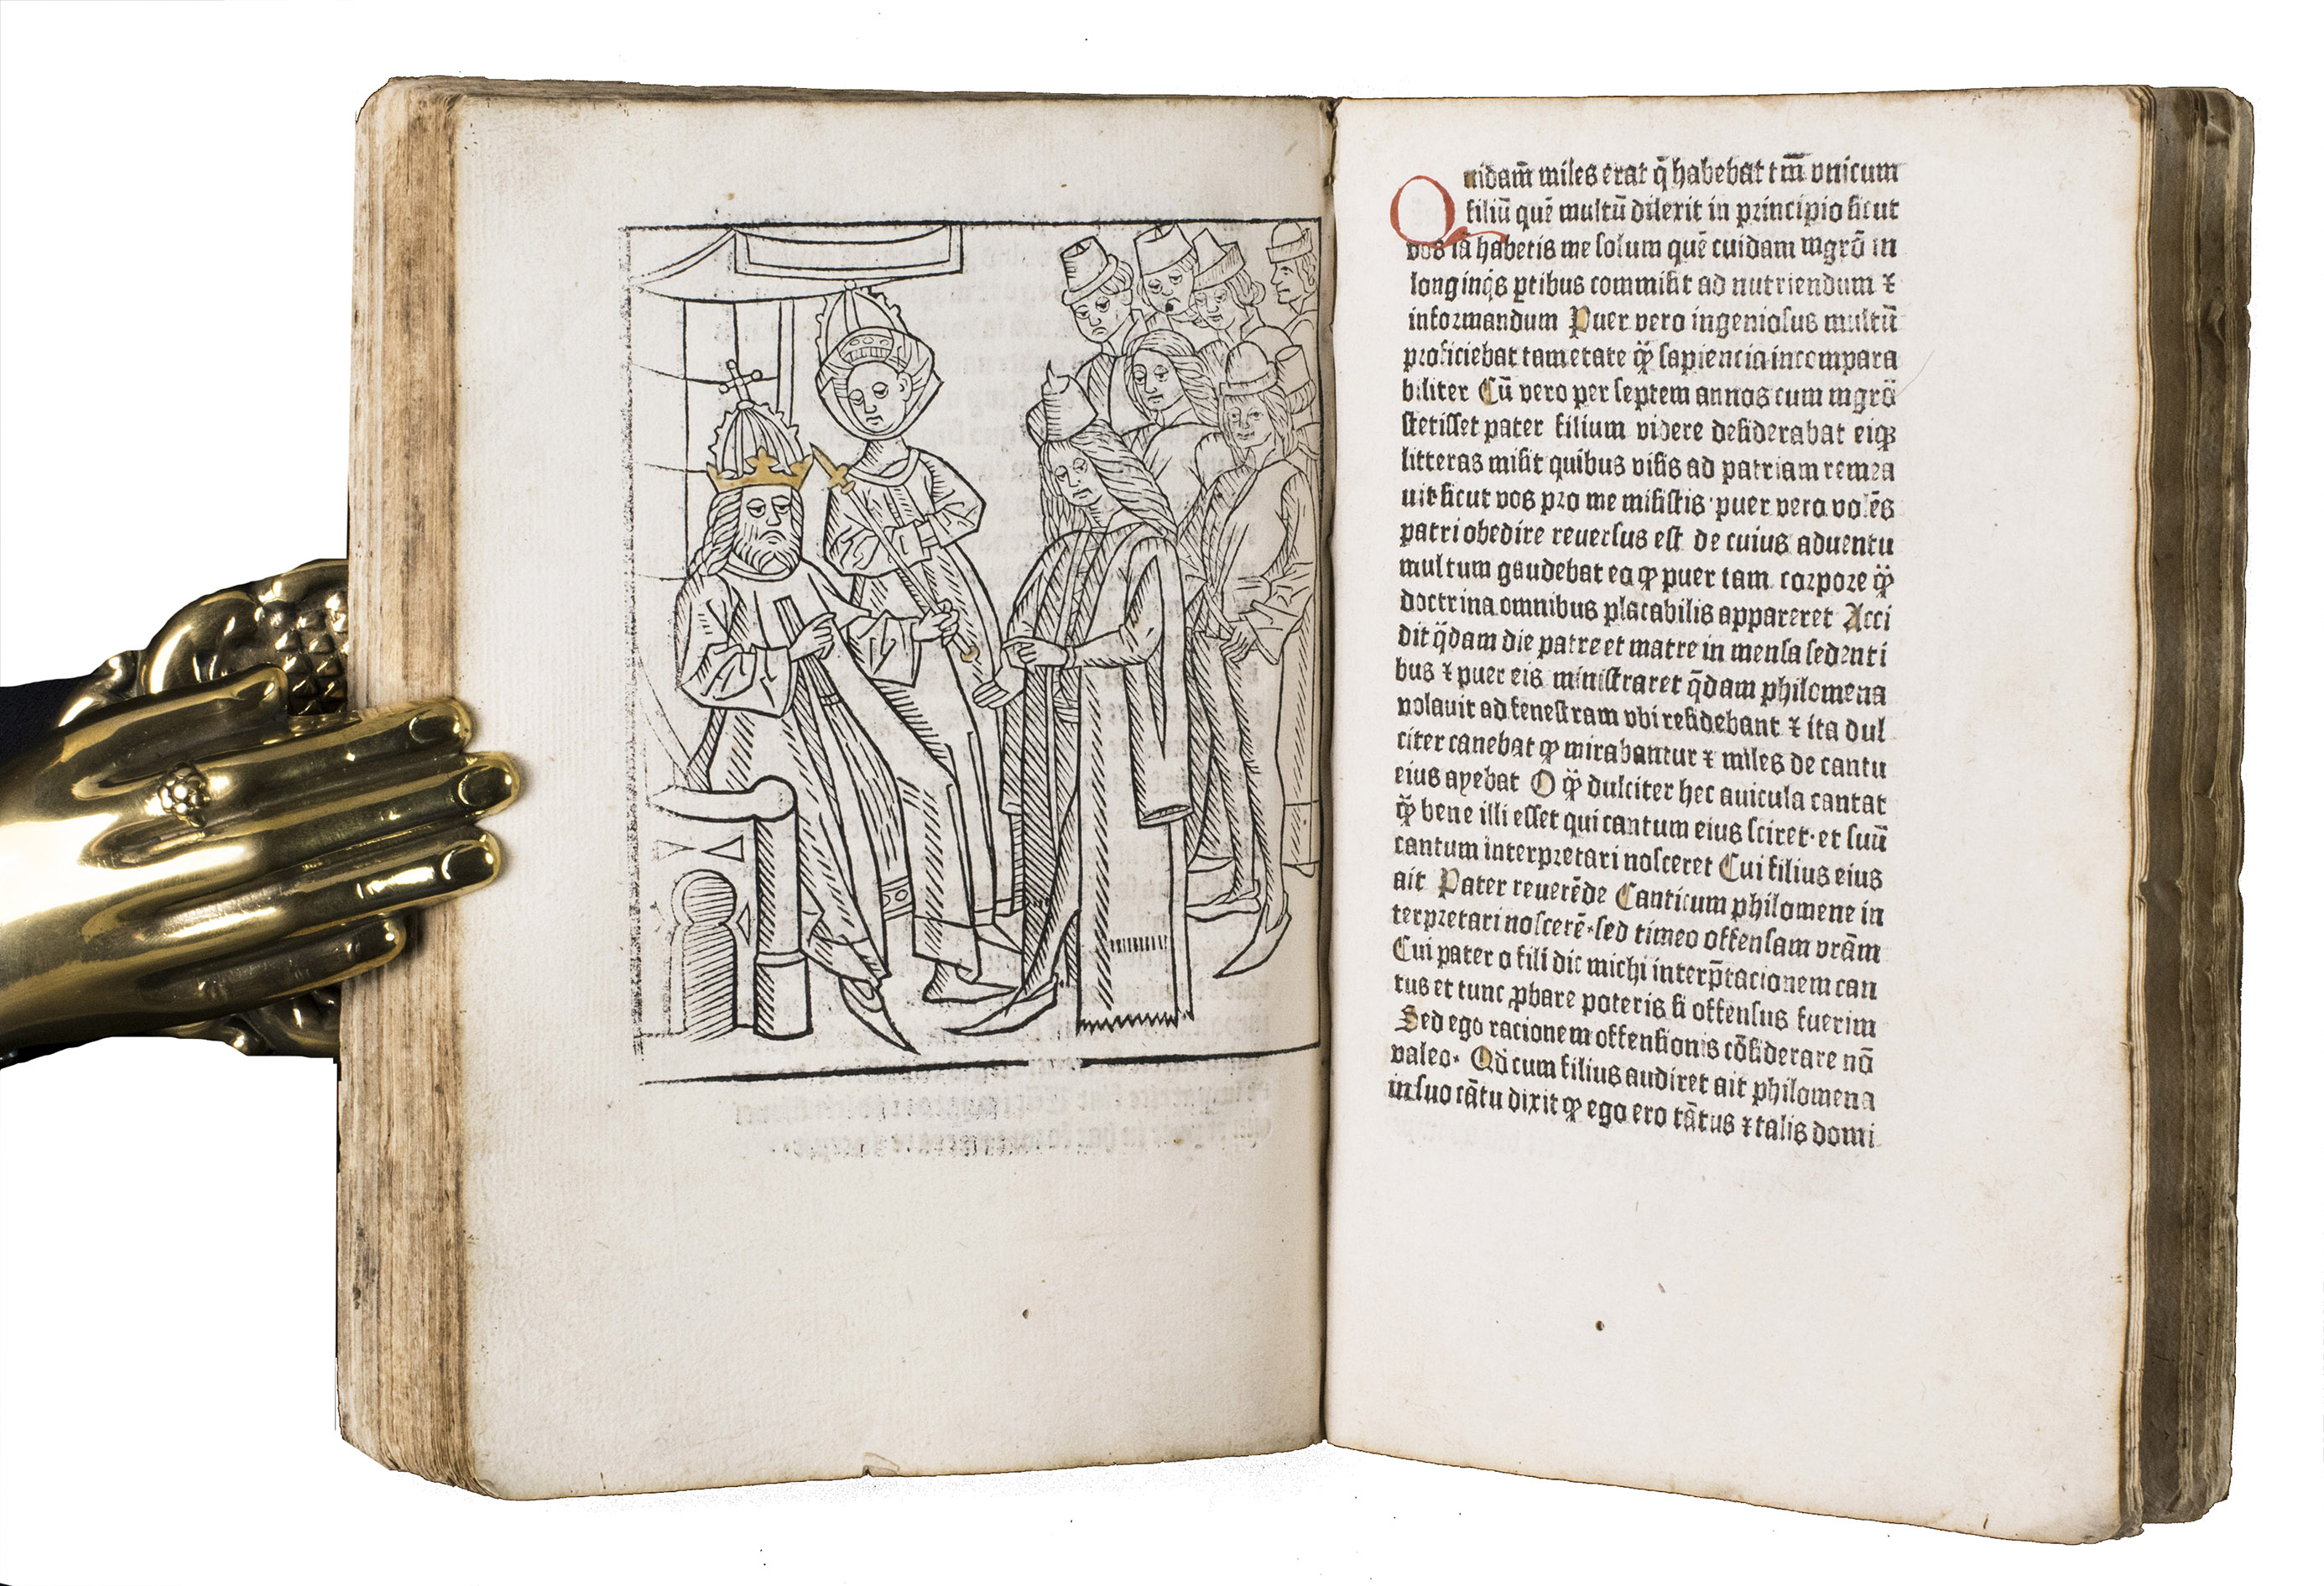 Quidam̄ miles erat q̄ habebat tm̄ vnicum
filiū quē multū dilexit in principio sicut
vos iā habetis me solum quē cuidam mgrō in
longinq̄s ꝑtibus commisit ad nutriendum ⁊
informandum Puer vero ingeniosus multū
proficiebat tam etate qȝ̄ sapiencia incompara
biliter Cū vero per septem annos cum mgrō
stetisset pater filium videre desiderabat eiqȝ
litteras misit quibus visis ad patriam remea
uit sicut vos pro me misistis· puer vero volēs
patri obedire reuersus est de cuius aduentu
multum gaudebat eo ꝙ puer tam corpore qȝ̄
doctrina omnibus placabilis appareret Acci
dit q̄dam die patre et matre in mensa sedenti
bus ⁊ puer eis ministraret q̄dam philomena
volauit ad fenestram vbi residebant ⁊ ita dul
citer canebat ꝙ mirabantur ⁊ miles de cantu
eius ayebat O qȝ̄ dulciter hec auicula cantat
qȝ̄ bene illi esset qui cantum eius sciret· et suū
cantum interpretari nosceret Cui filius eius
ait Pater reuerēde Canticum philomene in
terpretari noscerē· sed timeo offensam vrām
Cui pater o fili dic michi interp̄tacionem can
tus et tunc ꝓbare poteris si offensus fuerim
Sed ego racionem offensionis cōsiderare nō
valeo· Qd̄ cum filius audiret ait philomena
in suo cātu dixit ꝙ ego ero tātus ⁊ talis domi